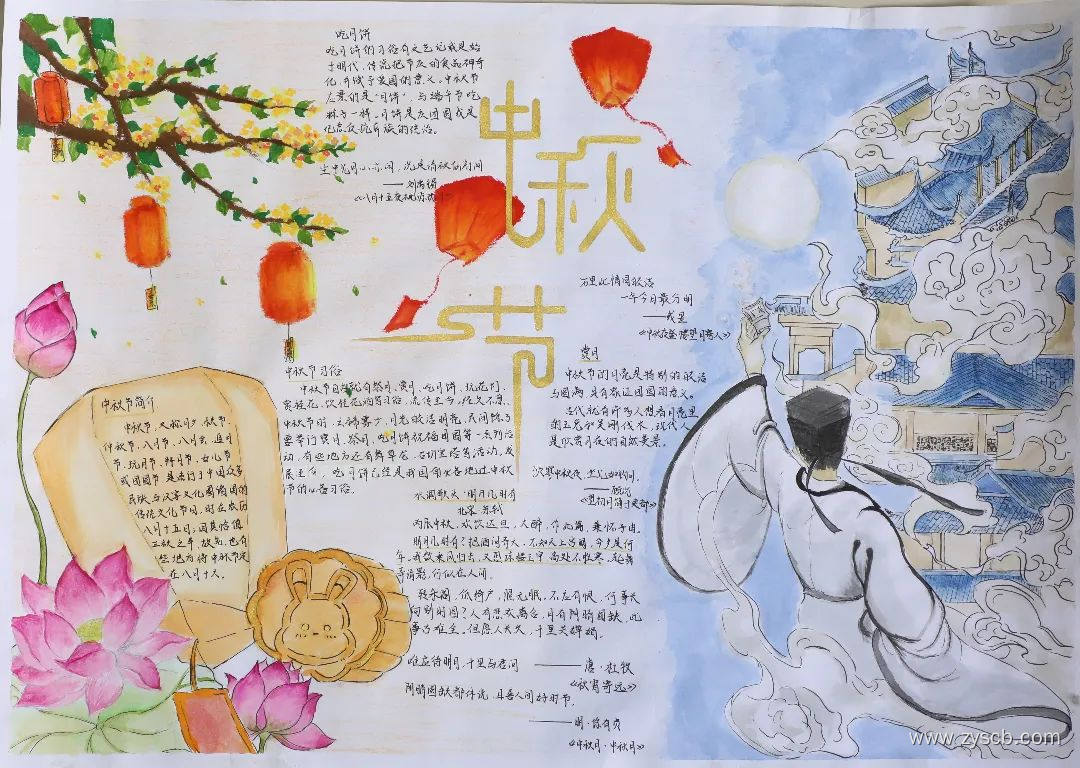 中秋节
吃月饼
吃月饼的习俗有文艺记载是始
于明代，传说把节庆的食品神奇
化，并赋予装圆的意义。中秋节
应景的是“月饼”，与端午节吃
粽子一样，月饼是
生中花月小示间，况是清秋
——刘禹锡
《八月十五夜桃
万里此情同皎洁
一年今日最分明
——戎昱
《中秋夜登楼望月寄人》
赏月
中秋节的月亮是特别的皎洁
与圆满，具有象征团圆的意义。
古代就有许多人想着月亮里
有玉兔和吴刚伐木，现代人
是欣赏月夜的自然美景。
中秋节习俗
中秋节自古就有祭月、赏月、吃月饼、玩花灯、
赏桂花、饮桂花酒等习俗，流传至今，经久不息。
中秋节时，云稀雾少，月光皎洁明亮，民间除了
要举行赏月、祭月、吃月饼祝福团圆等一系列活
动，有些地方还有舞草龙，砌宝塔等活动。发
展至今，吃月饼已经是我国南北各地过中秋
节的必备习俗。
中秋节简介
中秋节，又称月夕、秋节、
仲秋节、八月节、八月会、追月
节、玩月节、拜月节、女儿节
或团圆节，是流行于中国众多
民族与汉字文化圈诸国的
传统文化节日，时在农历
八月十五日；因其恰值
三秋之半，故名，也有
些地方将中秋节定
在八月十六。
水调歌头·明月几时有
北宋·苏轼
丙辰中秋，欢饮达旦，大醉，作此篇，兼怀子由。
明月几时有？把酒问青天。不知天上宫阙，今夕是何
年。我欲乘风归去，又恐琼楼玉宇，高处不胜寒。起舞
弄清影，何似在人间。
转朱阁，低绮户，照无眠。不应有恨，何事长
向别时圆？人有悲欢离合，月有阴晴圆缺，此
事古难全。但愿人长久，千里共婵娟。
唯应待明月，千里与君同 ——唐·杜牧
《秋霄寄远》
阴晴圆缺都休说，且喜人间好时节。
——明·徐有贞
《中秋月·中秋月》
www.zyscb.com